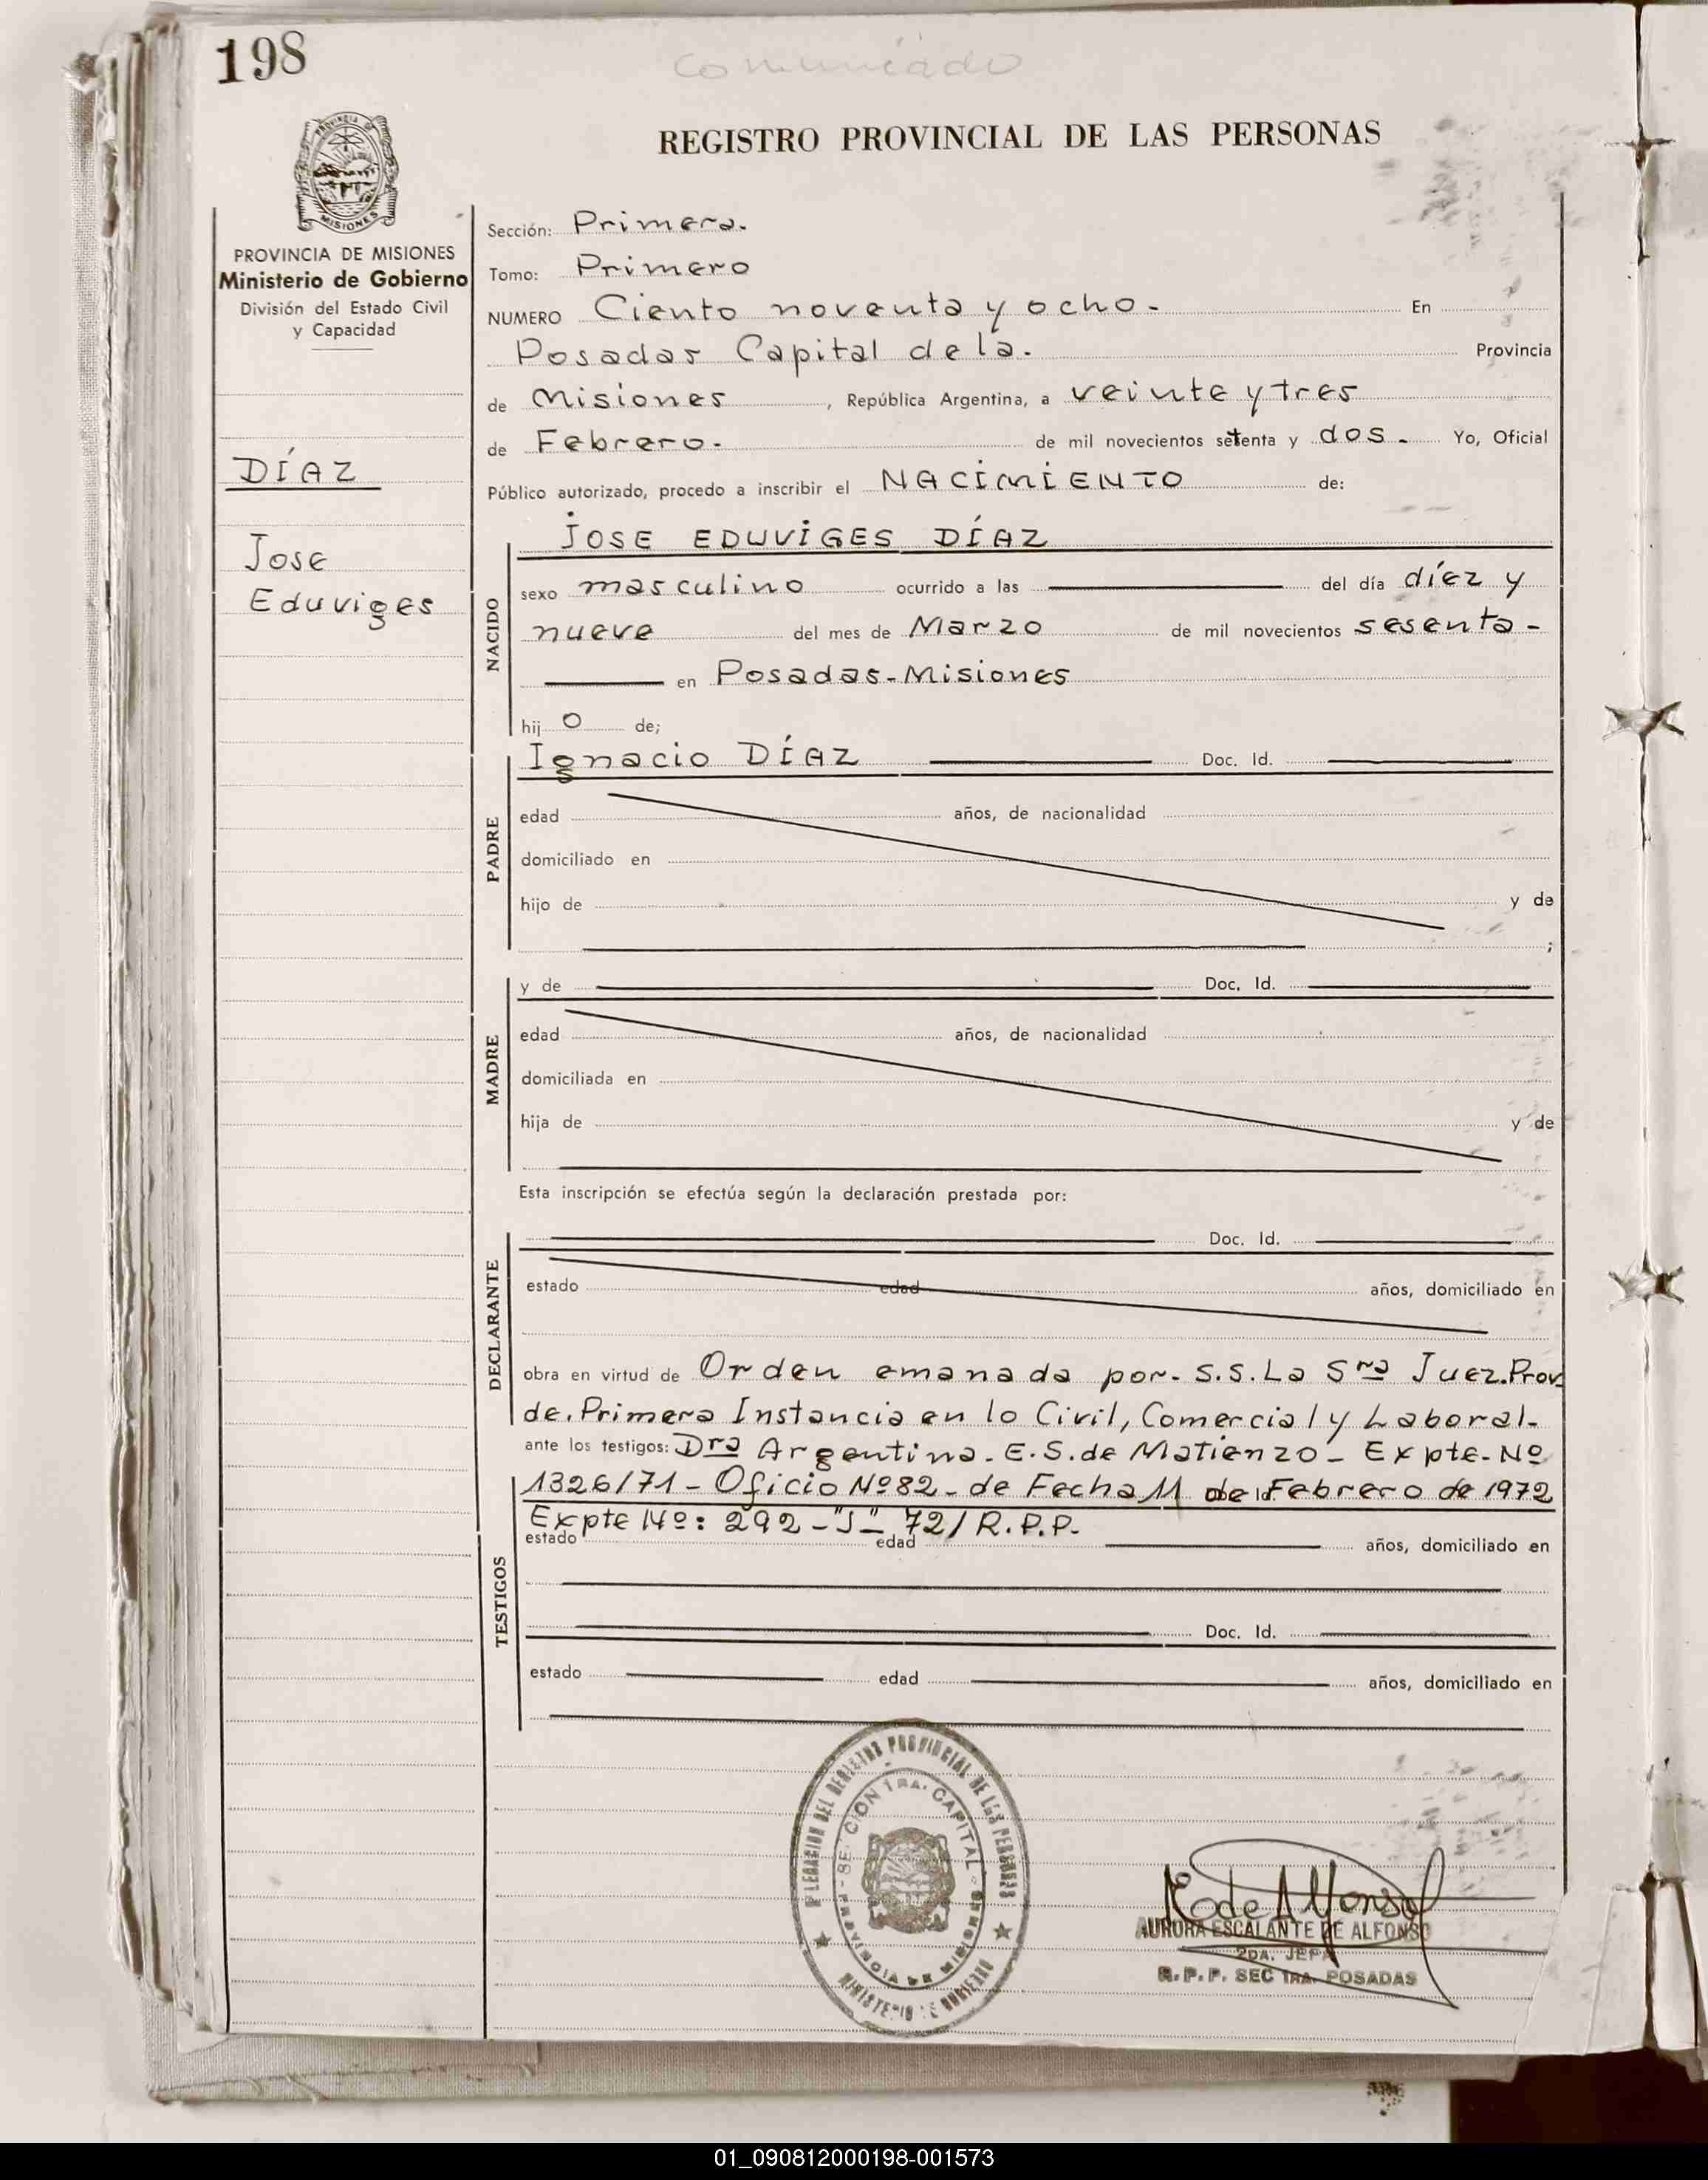 198
Comunicado
REGISTRO PROVINCIAL DE LAS PERSONAS
MISIONES
PROVINCIA DE MISIONES
Ministerio de Gobierno
División del Estado Civil
y Capacidad
DÍAZ
Jose
Eduviges
Sección: Primera.
Tomo: Primero
NUMERO Ciento noventa y ocho. En
Posadas Capital de la. Provincia
de Misiones, República Argentina, a veinte y tres
de Febrero. de mil novecientos setenta y dos. Yo, Oficial
Público autorizado, procedo a inscribir el NACIMIENTO de:
NACIDO
JOSE EDUVIGES DÍAZ
sexo masculino ocurrido a las del día díez y
nueve del mes de Marzo de mil novecientos sesenta-
en Posadas-Misiones
hij o de;
PADRE
Ignacio DÍAZ Doc. Id.
edad años, de nacionalidad
domiciliado en
hijo de y de
;
MADRE
y de Doc. Id.
edad años, de nacionalidad
domiciliada en
hija de y de
Esta inscripción se efectúa según la declaración prestada por:
DECLARANTE
Doc. Id.
estado edad años, domiciliado en
obra en virtud de Orden emanada por. S.S. La Sra Juez. Prov.
de. Primera Instancia en lo Civil, Comercial y Laboral-
ante los testigos: Dra Argentina. E. S. de Matienzo - Expte-Nº
1326/71 - Oficio Nº 82 - de Fecha 11 de Febrero de 1972
Expte Nº: 292 - "J" - 72/ R.P.P.
TESTIGOS
estado edad años, domiciliado en
Doc. Id.
estado edad años, domiciliado en
DELEGACION DEL REGISTRO PROVINCIAL DE LAS PERSONAS
SECCION 1RA. CAPITAL
PROVINCIA DE MISIONES
MINISTERIO DE GOBIERNO
E de Alfonso
AURORA ESCALANTE DE ALFONSO
2DA. JEFA
R.P.P. SEC 1RA. POSADAS
01_090812000198-001573